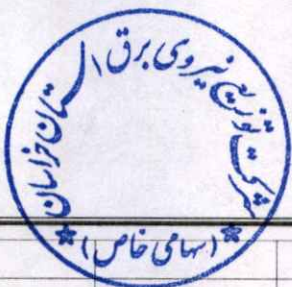 شرکت توزیع نیروی برق استان خراسان
(سهامی خاص)